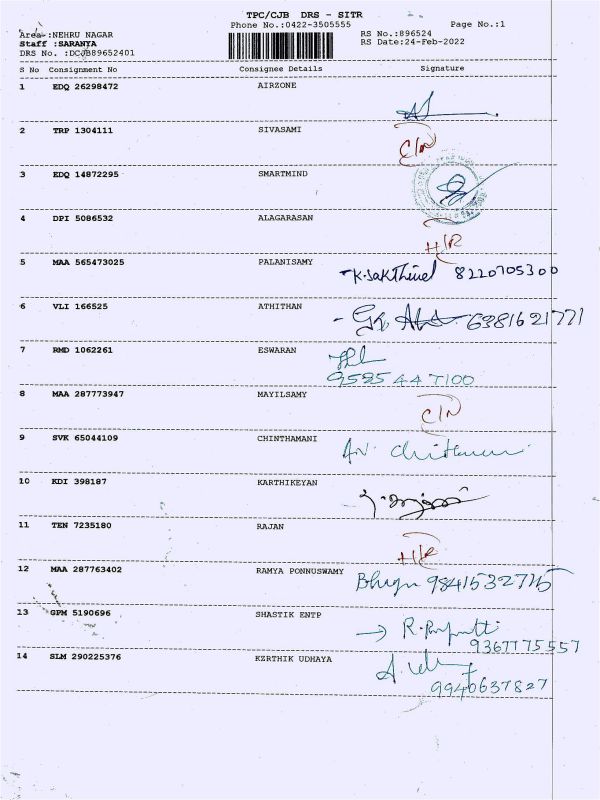 TPC/CJB DRS - SITR
Phone No.:0422-3505555 Page No.:1
Area :NEHRU NAGAR RS No.:896524
Staff :SARANYA RS Date:24-Feb-2022
DRS No. :DCJB89652401
S No Consignment No Consignee Details Signature
1 EDQ 26298472 AIRZONE
2 TRP 1304111 SIVASAMI C/N
3 EDQ 14872295 SMARTMIND
4 DPI 5086532 ALAGARASAN H/R
5 MAA 565473025 PALANISAMY K.Sakthivel 8220705300
6 VLI 166525 ATHITHAN 6381621771
7 RMD 1062261 ESWARAN
9585447100
8 MAA 287773947 MAYILSAMY C/N
9 SVK 65044109 CHINTHAMANI
10 KDI 398187 KARTHIKEYAN
11 TEN 7235180 RAJAN H/R
12 MAA 287763402 RAMYA PONNUSWAMY
13 GPM 5190696 SHASTIK ENTP
9367775557
14 SLM 290225376 KZRTHIK UDHAYA
9940637827